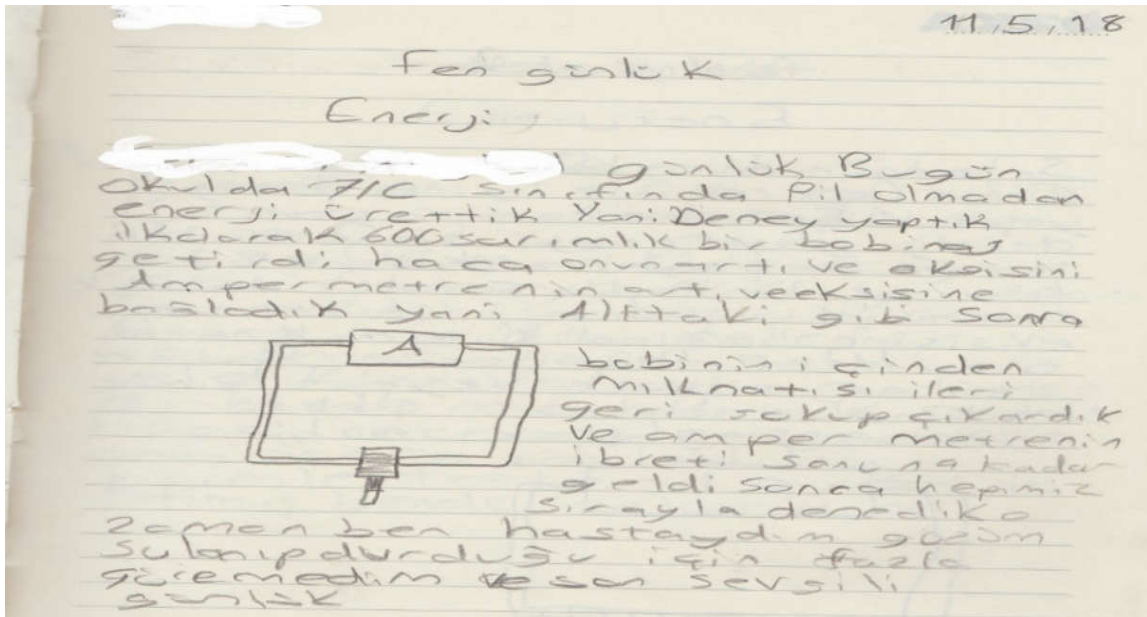 11.5.18
Fen günlük
Enerji
günlük Bugün
okulda 7/C sınıfında Pil olmadan
enerji ürettik Yani Deney yaptık
ilkolarak 600 sarımlık bir bobinas
getirdi hoca onun artı ve eksisini
Ampermetrenin artı veeksisine
bağladık yani Alttaki gibi Sonra
A
bobinin içinden
mıknatısı ileri
geri sokup çıkardık
ve amper metrenin
ibreti sonuna kadar
geldi sonra hepimiz
sırayla denedik o
zaman ben hastaydım gözüm
sulanıpdurduğu için fazla
göremedim ve son sevgili
günlük